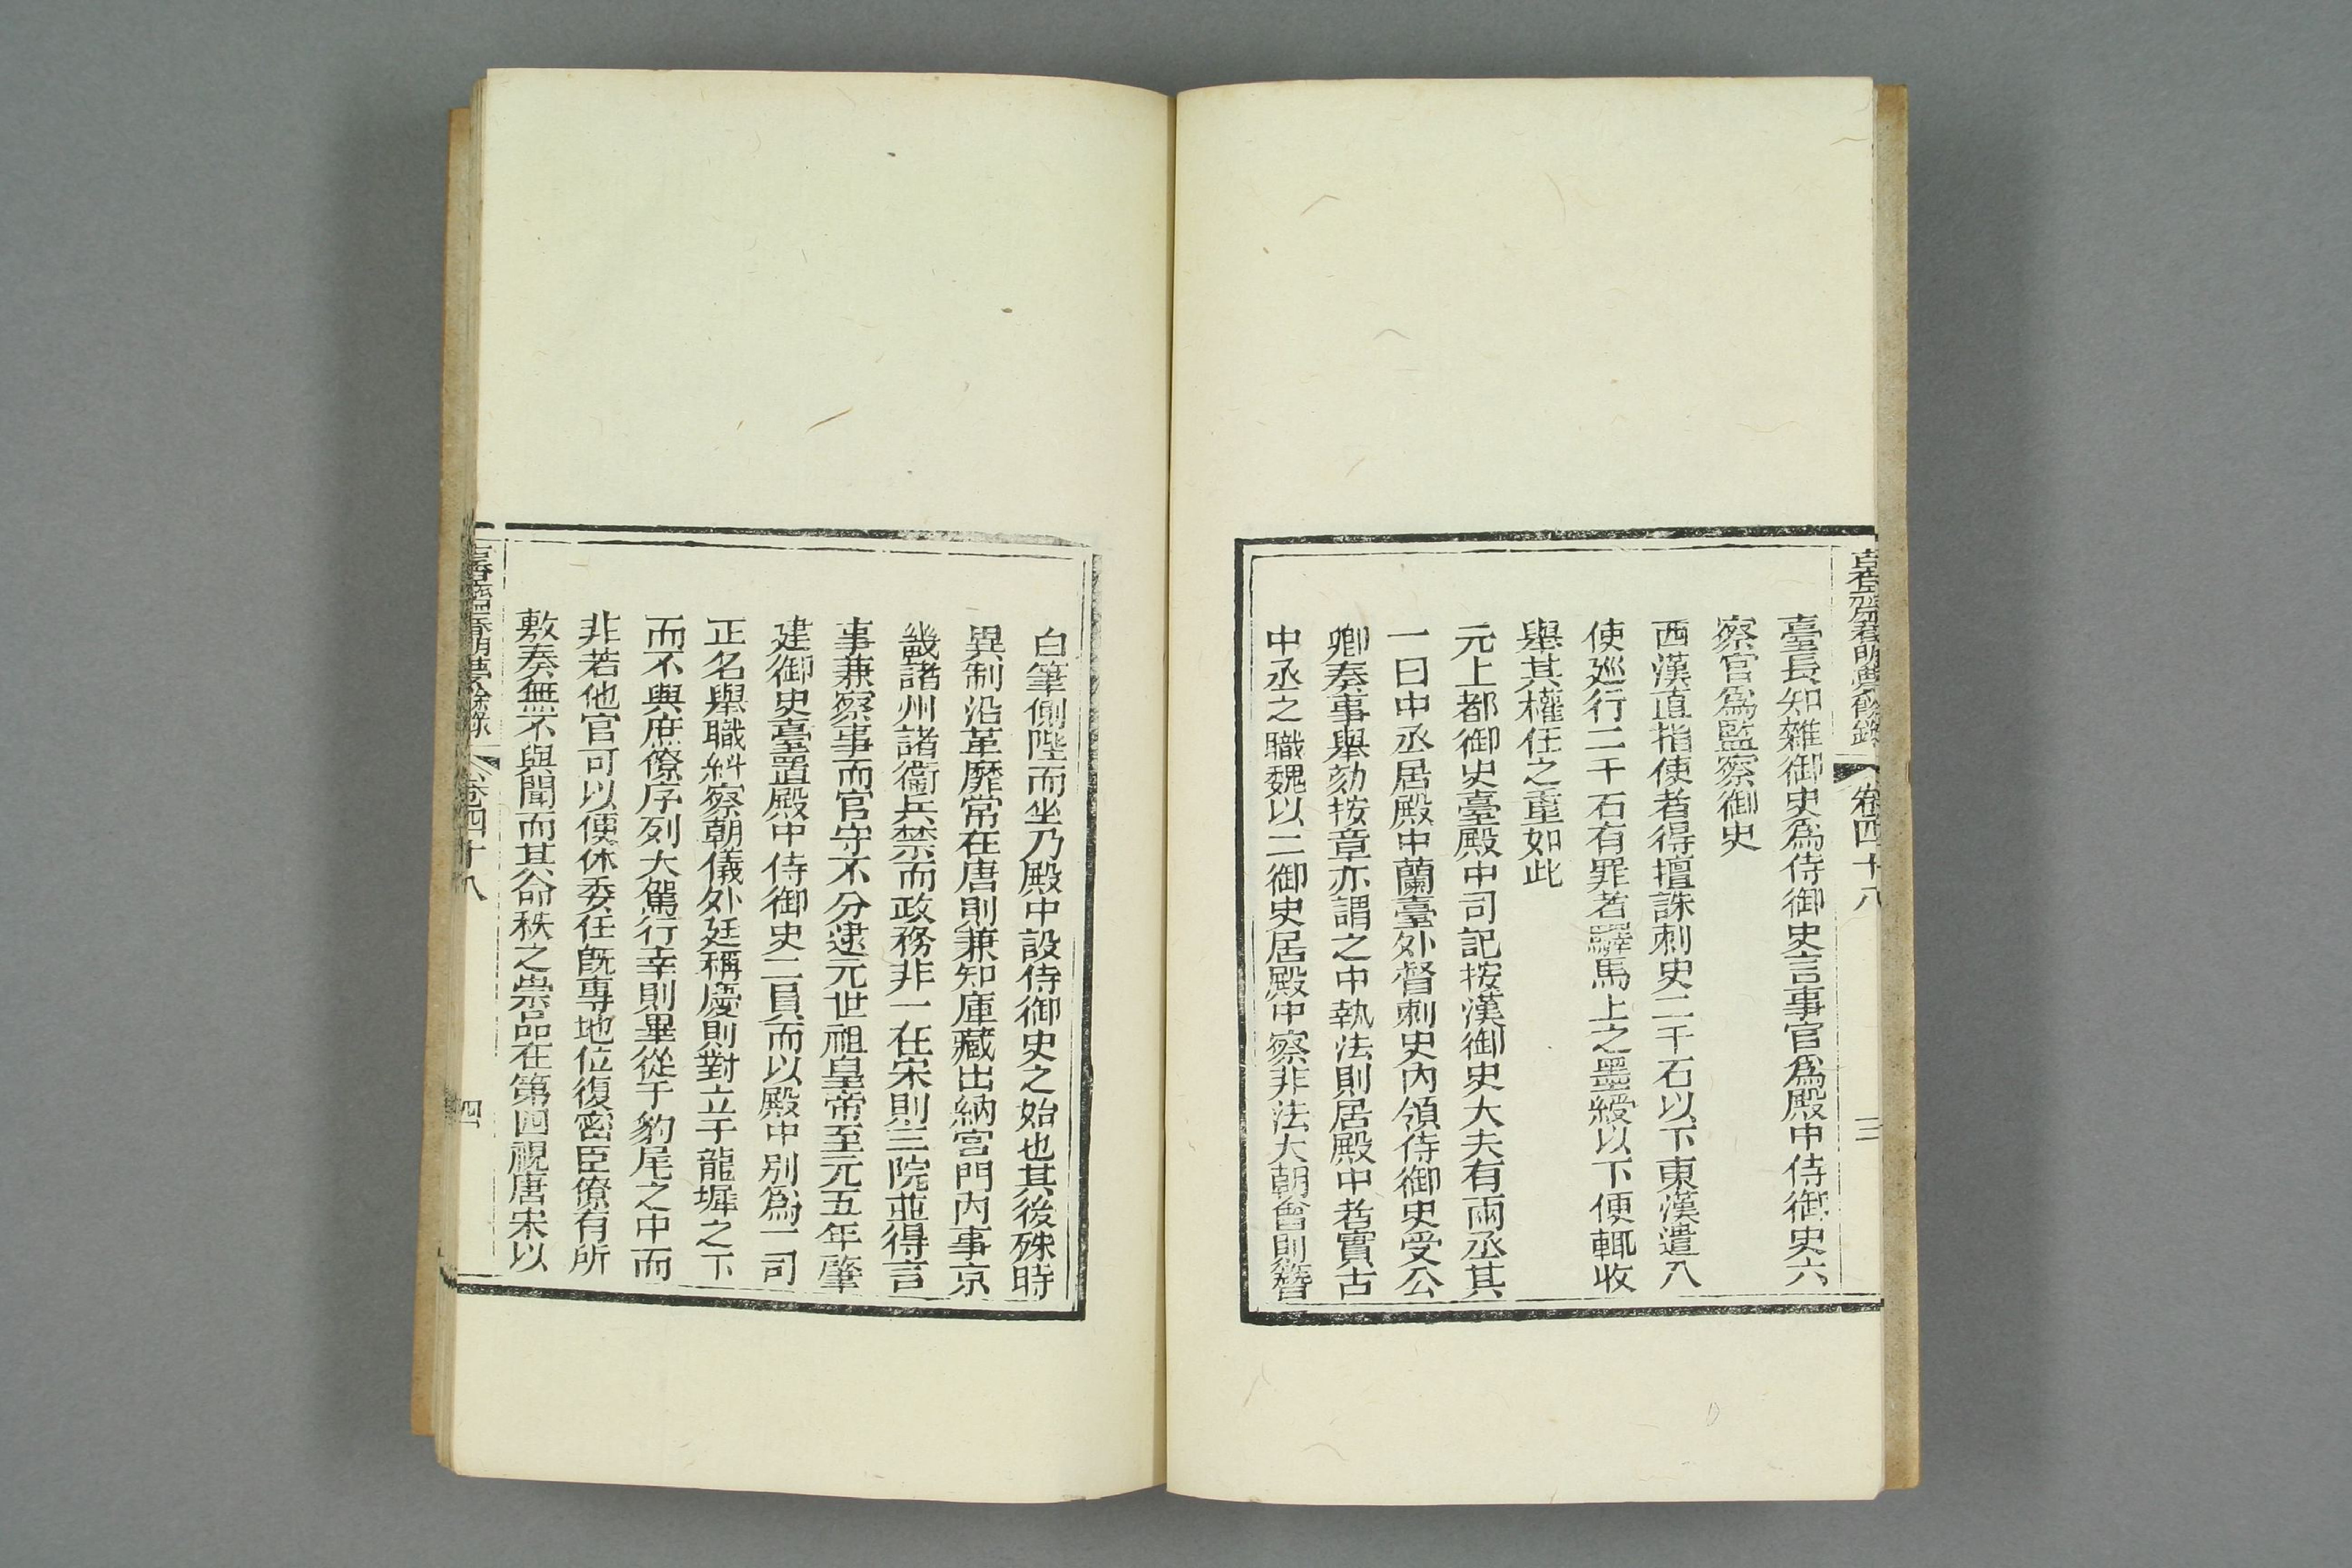 古香齋春明夢餘錄 卷四十八 三
臺長知雜御史爲侍御史言事官爲殿中侍御史六
察官爲監察御史
西漢直指使者得擅誅刺史二千石以下東漢遣八
使廵行二千石有罪者驛馬上之墨綬以下便輒收
舉其權任之重如此
元上都御史臺殿中司記按漢御史大夫有兩丞其
一曰中丞居殿中蘭臺外督刺史內領侍御史受公
卿奏事舉劾按章亦謂之中執法則居殿中者實古
中丞之職魏以二御史居殿中察非法大朝會則簪
白筆側陛而坐乃殿中設侍御史之始也其後殊時
異制沿革靡常在唐則兼知庫藏出納宮門內事京
畿諸州諸衞兵禁而政務非一在宋則三院並得言
事兼察事而官守不分逮元世祖皇帝至元五年肇
建御史臺置殿中侍御史二員而以殿中別爲一司
正名舉職糾察朝儀外廷稱慶則對立于龍墀之下
而不與庶僚序列大駕行幸則畢從于豹尾之中而
非若他官可以便休委任旣專地位復密臣僚有所
敷奏無不與聞而其命秩之崇品在第四視唐宋以
古香齋春明夢餘錄 卷四十八 四